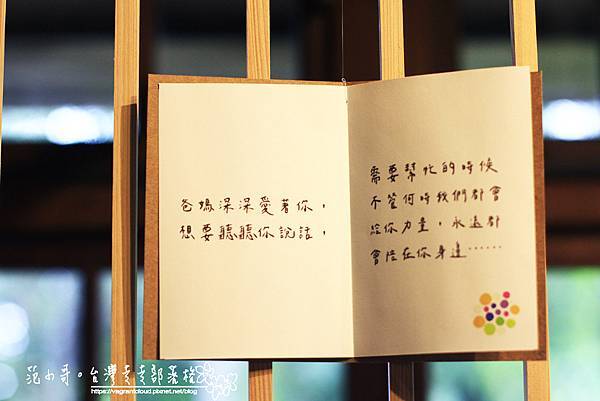 爸媽深深愛著你，
想要聽聽你說話，
需要幫忙的時候
不管何時我們都會
給你力量，永遠都
會陪在你身邊……
范小哥。台灣走走部落格
https://vagrantcloud.pixnet.net/blog